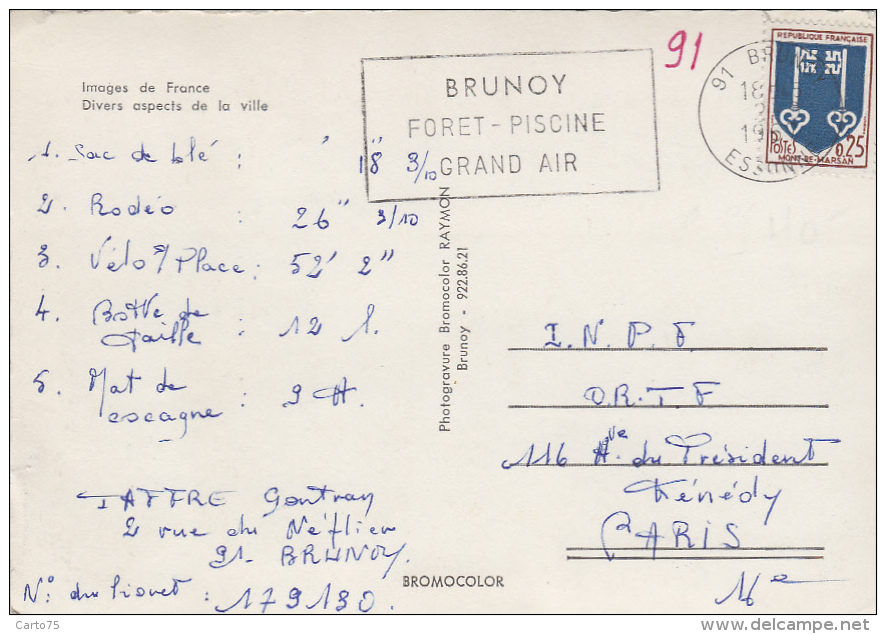 Images de France
Divers aspects de la ville
1. Sac de blé : 18" 3/10
2. Rodéo : 26" 3/10
3. Vélo s/Place : 52' 2"
4. Botte de paille : 12 l.
5. Mat de cocagne : 9 H.
TAFFRE Gontran
2 rue du Néflier
91. BRUNOY.
N° du livret : 179130.
BRUNOY
FORET-PISCINE
GRAND AIR
91
91 BRUNOY
18
19
ESSONNE
REPUBLIQUE FRANÇAISE
POSTES
0,25
MONT-DE-MARSAN
Photogravure Bromocolor RAYMON
Brunoy - 922.86.21
BROMOCOLOR
I. N. P. F
O.R.T F
116 Ave. du Président
Kénédy
PARIS
16e
Carto75
www.delcampe.net